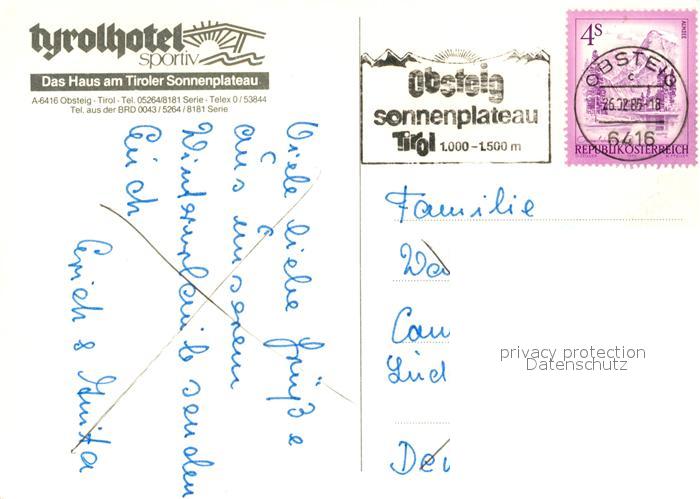 tyrolhotel
sportiv
Das Haus am Tiroler Sonnenplateau
A-6416 Obsteig · Tirol · Tel. 05264/8181 Serie · Telex 0 / 53844
Tel. aus der BRD 0043 / 5264 / 8181 Serie
Viele liebe Grüße
aus unserem
Winterurlaub senden
Euch
Erich &
Obsteig
sonnenplateau
Tirol 1.000 – 1.500 m
4S
ALMSEE
REPUBLIK ÖSTERREICH
OBSTEIG
c
26.02.86-18
6416
Familie
Wa
Cam
Lüd
De
privacy protection
Datenschutz